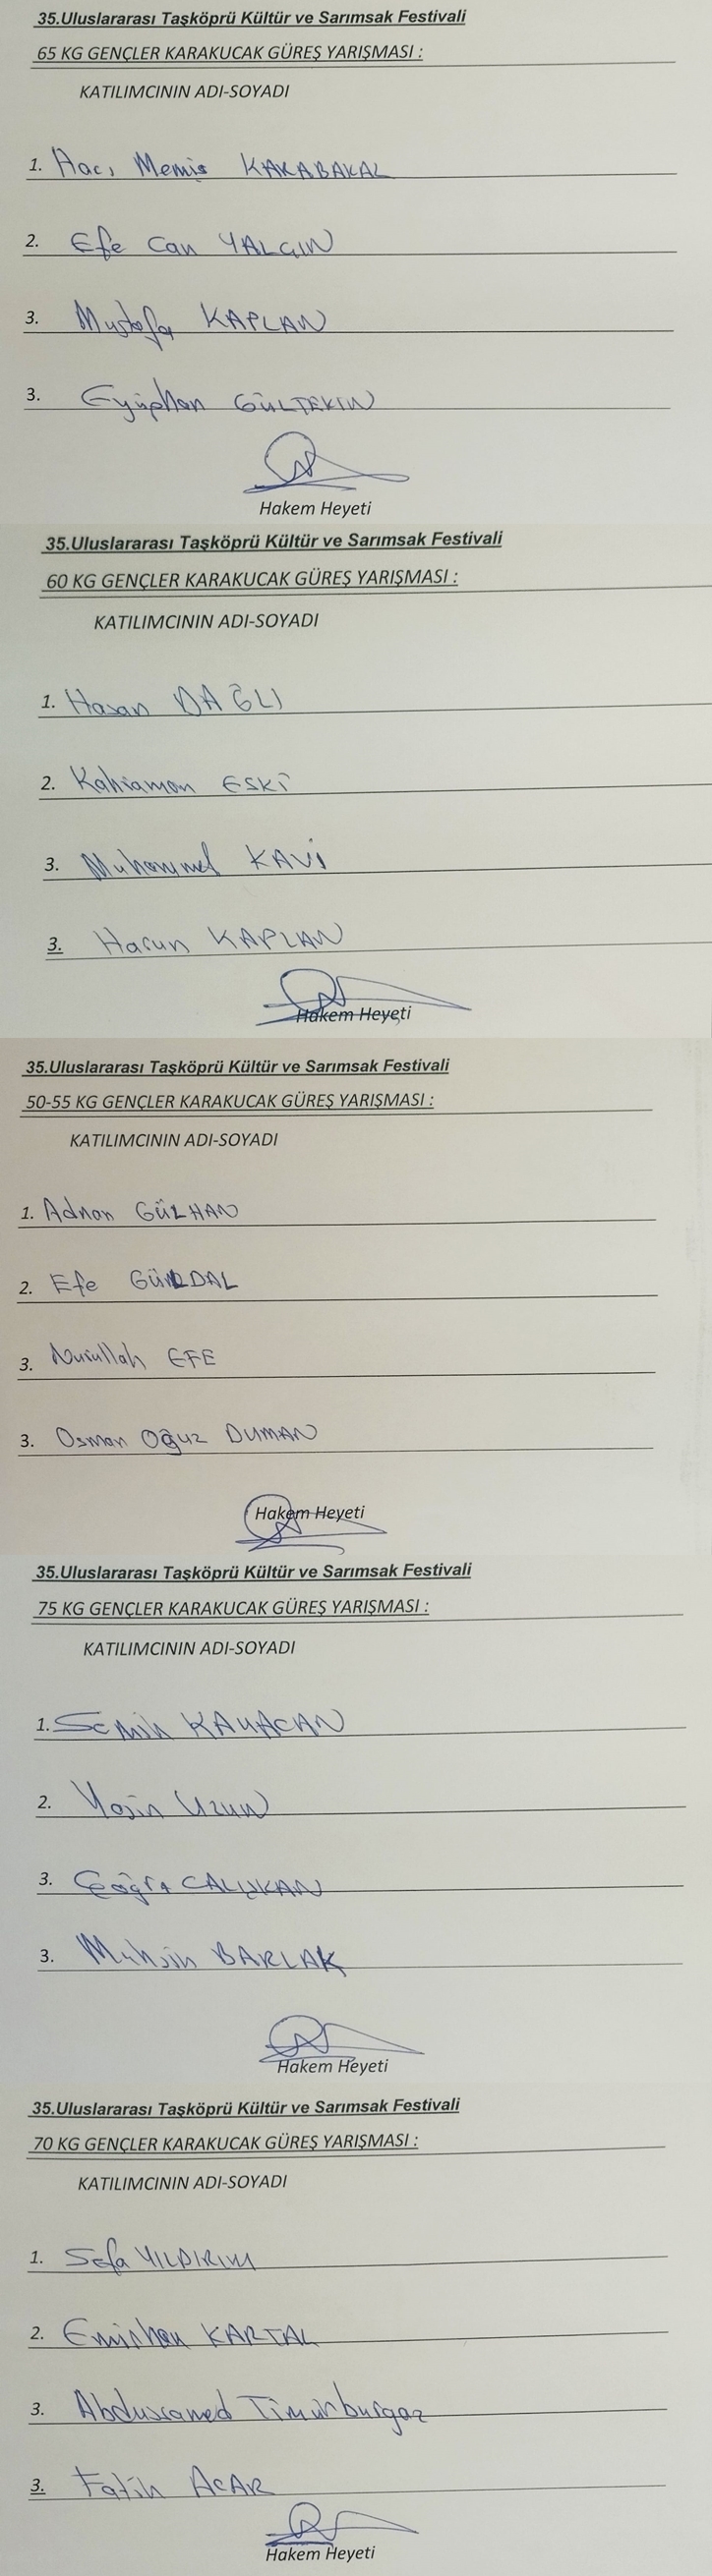 35.Uluslararası Taşköprü Kültür ve Sarımsak Festivali
65 KG GENÇLER KARAKUCAK GÜREŞ YARIŞMASI :
KATILIMCININ ADI-SOYADI
1. Hacı Memiş KARABAKAL
2. Efe Can YALÇIN
3. Mustafa KAPLAN
3. Eyüphan GÜLTEKİN
Hakem Heyeti
35.Uluslararası Taşköprü Kültür ve Sarımsak Festivali
60 KG GENÇLER KARAKUCAK GÜREŞ YARIŞMASI :
KATILIMCININ ADI-SOYADI
1. Hasan DAĞLI
2. Kahraman ESKİ
3. Muhammed KAVİ
3. Harun KAPLAN
Hakem Heyeti
35.Uluslararası Taşköprü Kültür ve Sarımsak Festivali
50-55 KG GENÇLER KARAKUCAK GÜREŞ YARIŞMASI :
KATILIMCININ ADI-SOYADI
1. Adnan GÜLHAN
2. Efe
3. Nurullah EFE
3. Osman Oğuz DUMAN
Hakem Heyeti
35.Uluslararası Taşköprü Kültür ve Sarımsak Festivali
75 KG GENÇLER KARAKUCAK GÜREŞ YARIŞMASI :
KATILIMCININ ADI-SOYADI
1. Semih KAYACAN
2. Yasin UZUN
3. ÇALIŞKAN
3. Muhsin BARLAK
Hakem Heyeti
35.Uluslararası Taşköprü Kültür ve Sarımsak Festivali
70 KG GENÇLER KARAKUCAK GÜREŞ YARIŞMASI :
KATILIMCININ ADI-SOYADI
1. Sefa YILDIRIM
2. Emirhan KARTAL
3. Abdussamed Timurburgaz
3. Fatih ACAR
Hakem Heyeti